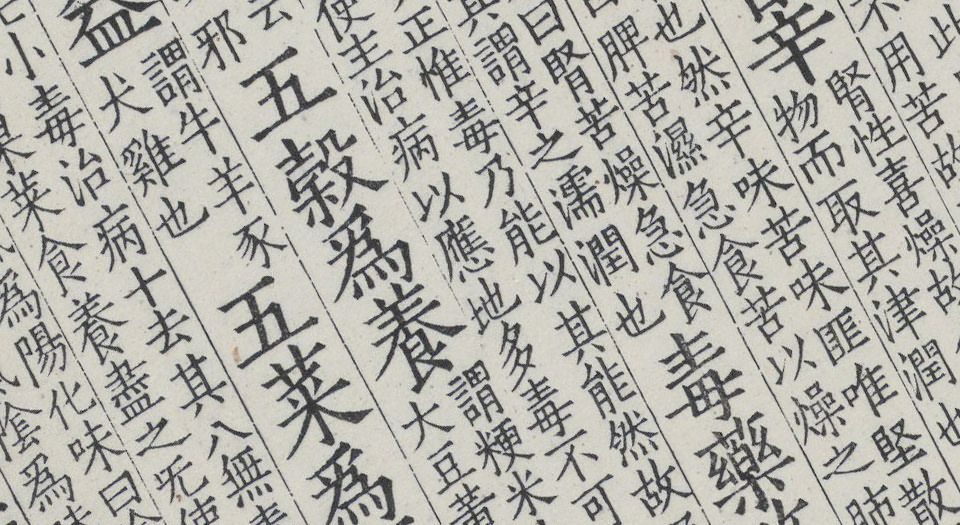 此
不用苦故
辛
腎性喜燥故
物而取其津潤也
也然辛味苦味匪唯堅散
脾苦濕急食苦以燥之肺
曰腎苦燥急食
其謂辛之濡潤也
毒藥
正惟毒乃能以其能然故
使主治病以應地多毒不可
云
邪
五穀爲養
謂粳米
大豆黃
益
謂牛羊豕
犬雞也
五菜爲
小毒治病十去其八無毒
果菜食養盡之无使
爲陽化味曰
陰爲味